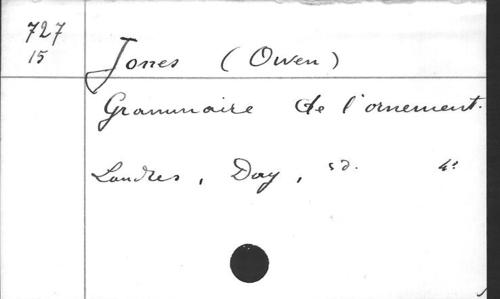 727
15
Jones (Owen)
Grammaire de l'ornement.
Londres, Day, s d. 4°